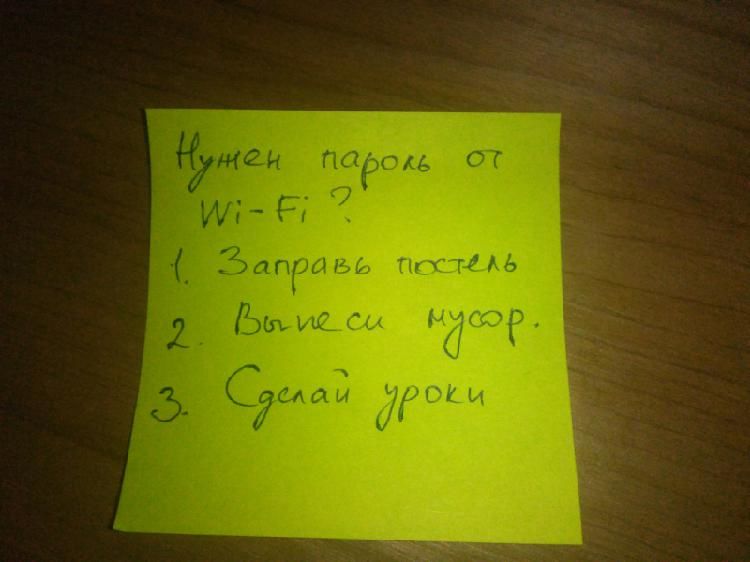 Нужен пароль от
Wi-Fi?
1. Заправь постель
2. Вынеси мусор.
3. Сделай уроки